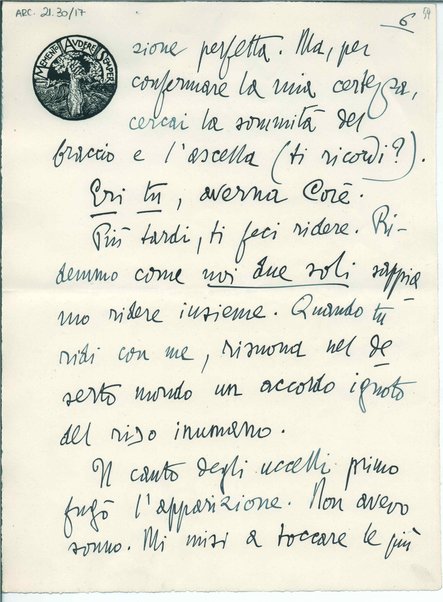 ARC. 21.30/17
6
54
MEMENTO AUDERE SEMPER
zione perfetta. Ma, per
confermare la mia certezza,
cercai la sommità del
braccio e l'ascella (ti ricordi?).
Eri tu, averna Corè.
Più tardi, ti feci ridere. Ri-
demmo come noi due soli sappia
mo ridere insieme. Quando tu
ridi con me, risuona nel de
serto mondo un accordo ignoto
del riso inumano.
Il canto degli uccelli primo
fugò l'apparizione. Non avevo
sonno. Mi misi a toccare le più